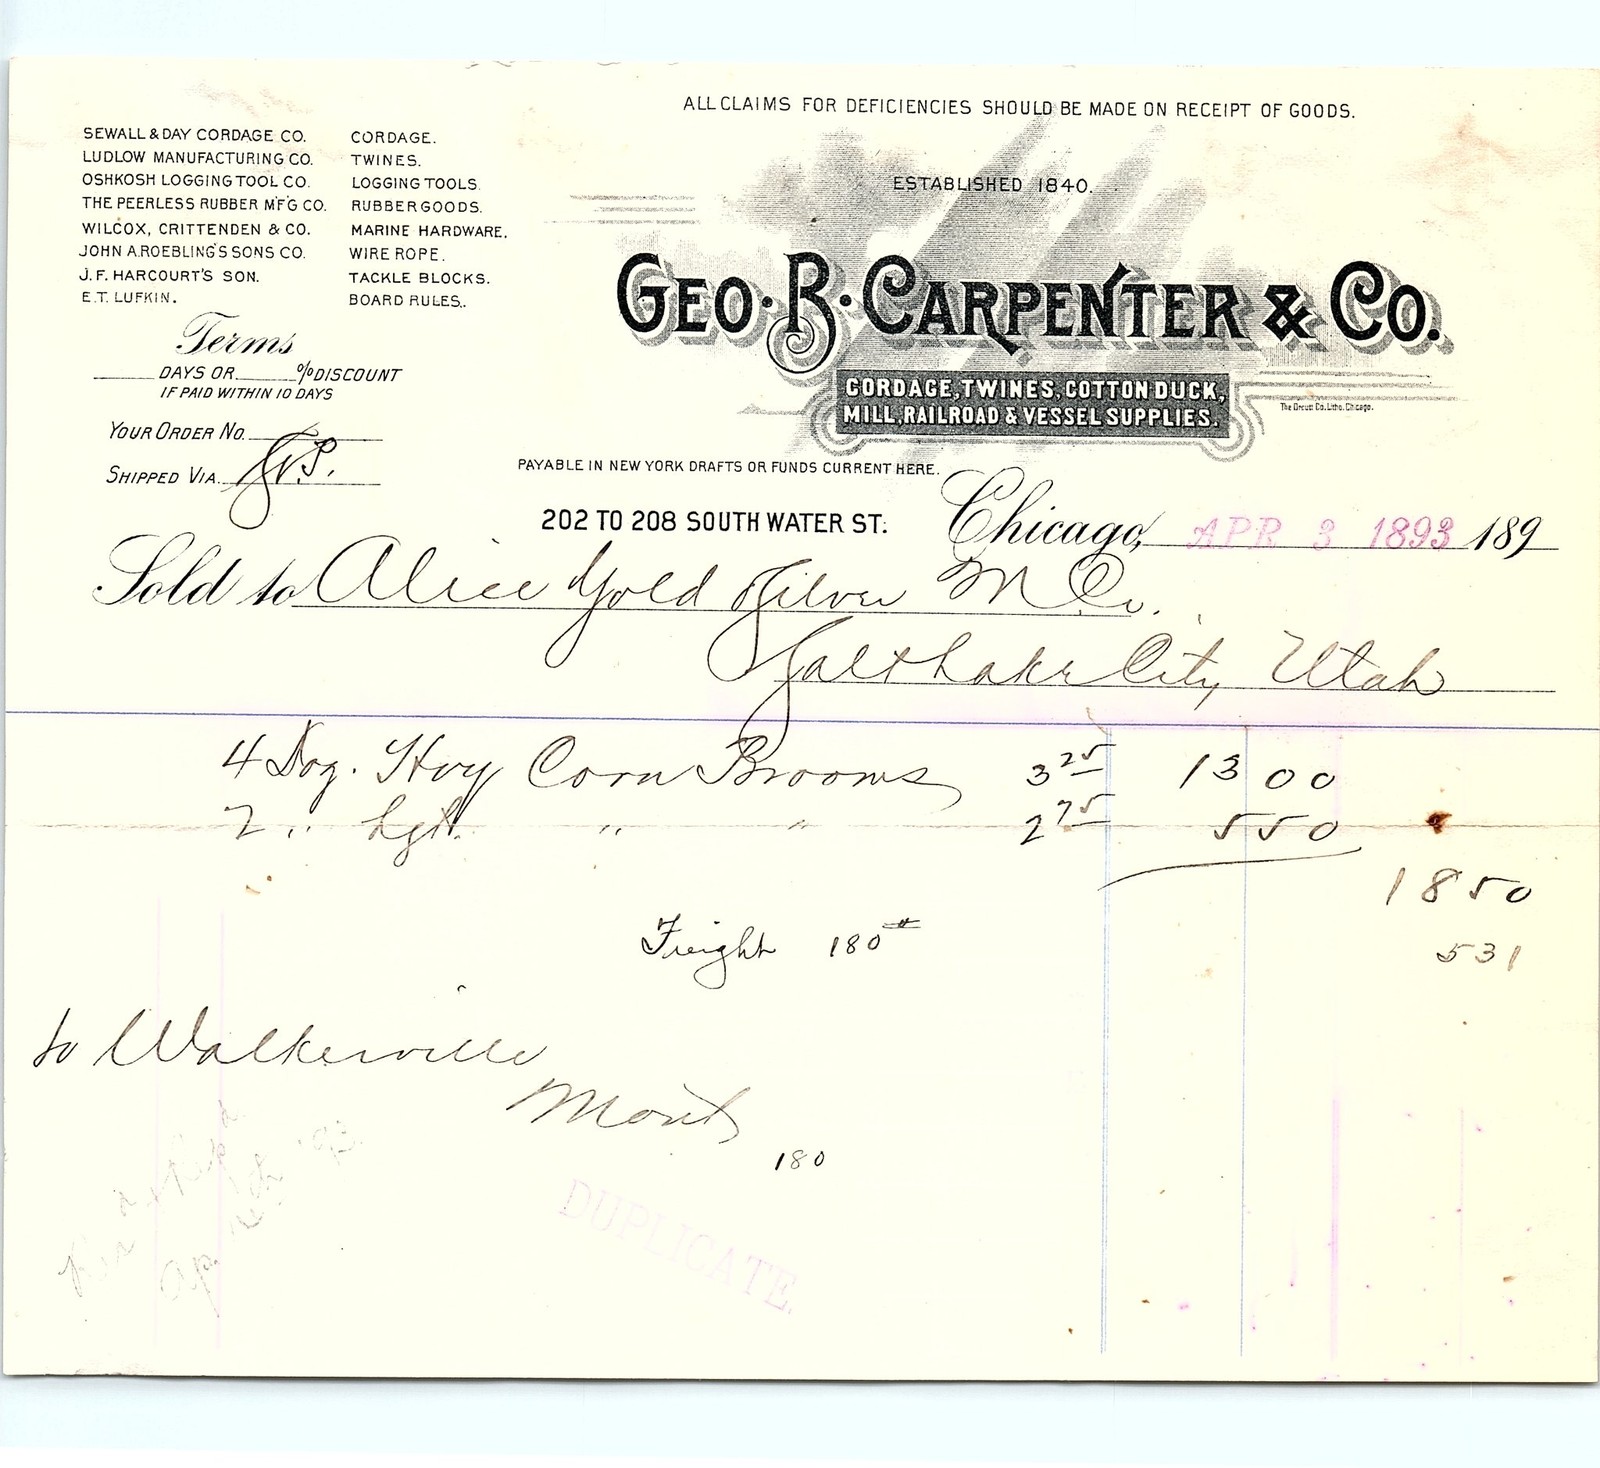 ALL CLAIMS FOR DEFICIENCIES SHOULD BE MADE ON RECEIPT OF GOODS.
SEWALL & DAY CORDAGE CO. CORDAGE.
LUDLOW MANUFACTURING CO. TWINES.
OSHKOSH LOGGING TOOL CO. LOGGING TOOLS.
THE PEERLESS RUBBER M'F'G CO. RUBBER GOODS.
WILCOX, CRITTENDEN & CO. MARINE HARDWARE.
JOHN A. ROEBLING'S SONS CO. WIRE ROPE.
J. F. HARCOURT'S SON. TACKLE BLOCKS.
E. T. LUFKIN. BOARD RULES.
ESTABLISHED 1840.
GEO. B. CARPENTER & CO.
CORDAGE, TWINES, COTTON DUCK,
MILL, RAILROAD & VESSEL SUPPLIES.
The Orcutt Co. Litho. Chicago.
Terms
DAYS OR % DISCOUNT
IF PAID WITHIN 10 DAYS
YOUR ORDER NO.
SHIPPED VIA.
PAYABLE IN NEW YORK DRAFTS OR FUNDS CURRENT HERE.
202 TO 208 SOUTH WATER ST. Chicago, APR 3 1893 189
Sold to Alice Gold & Silver M. Co.
Salt Lake City, Utah
4 Doz. Hvy Corn Brooms 3 25 13 00
2 " Lgt. " " 2 75 5 50
18 50
Freight 180 # 5 31
to Walkerville
Mont
180
DUPLICATE.